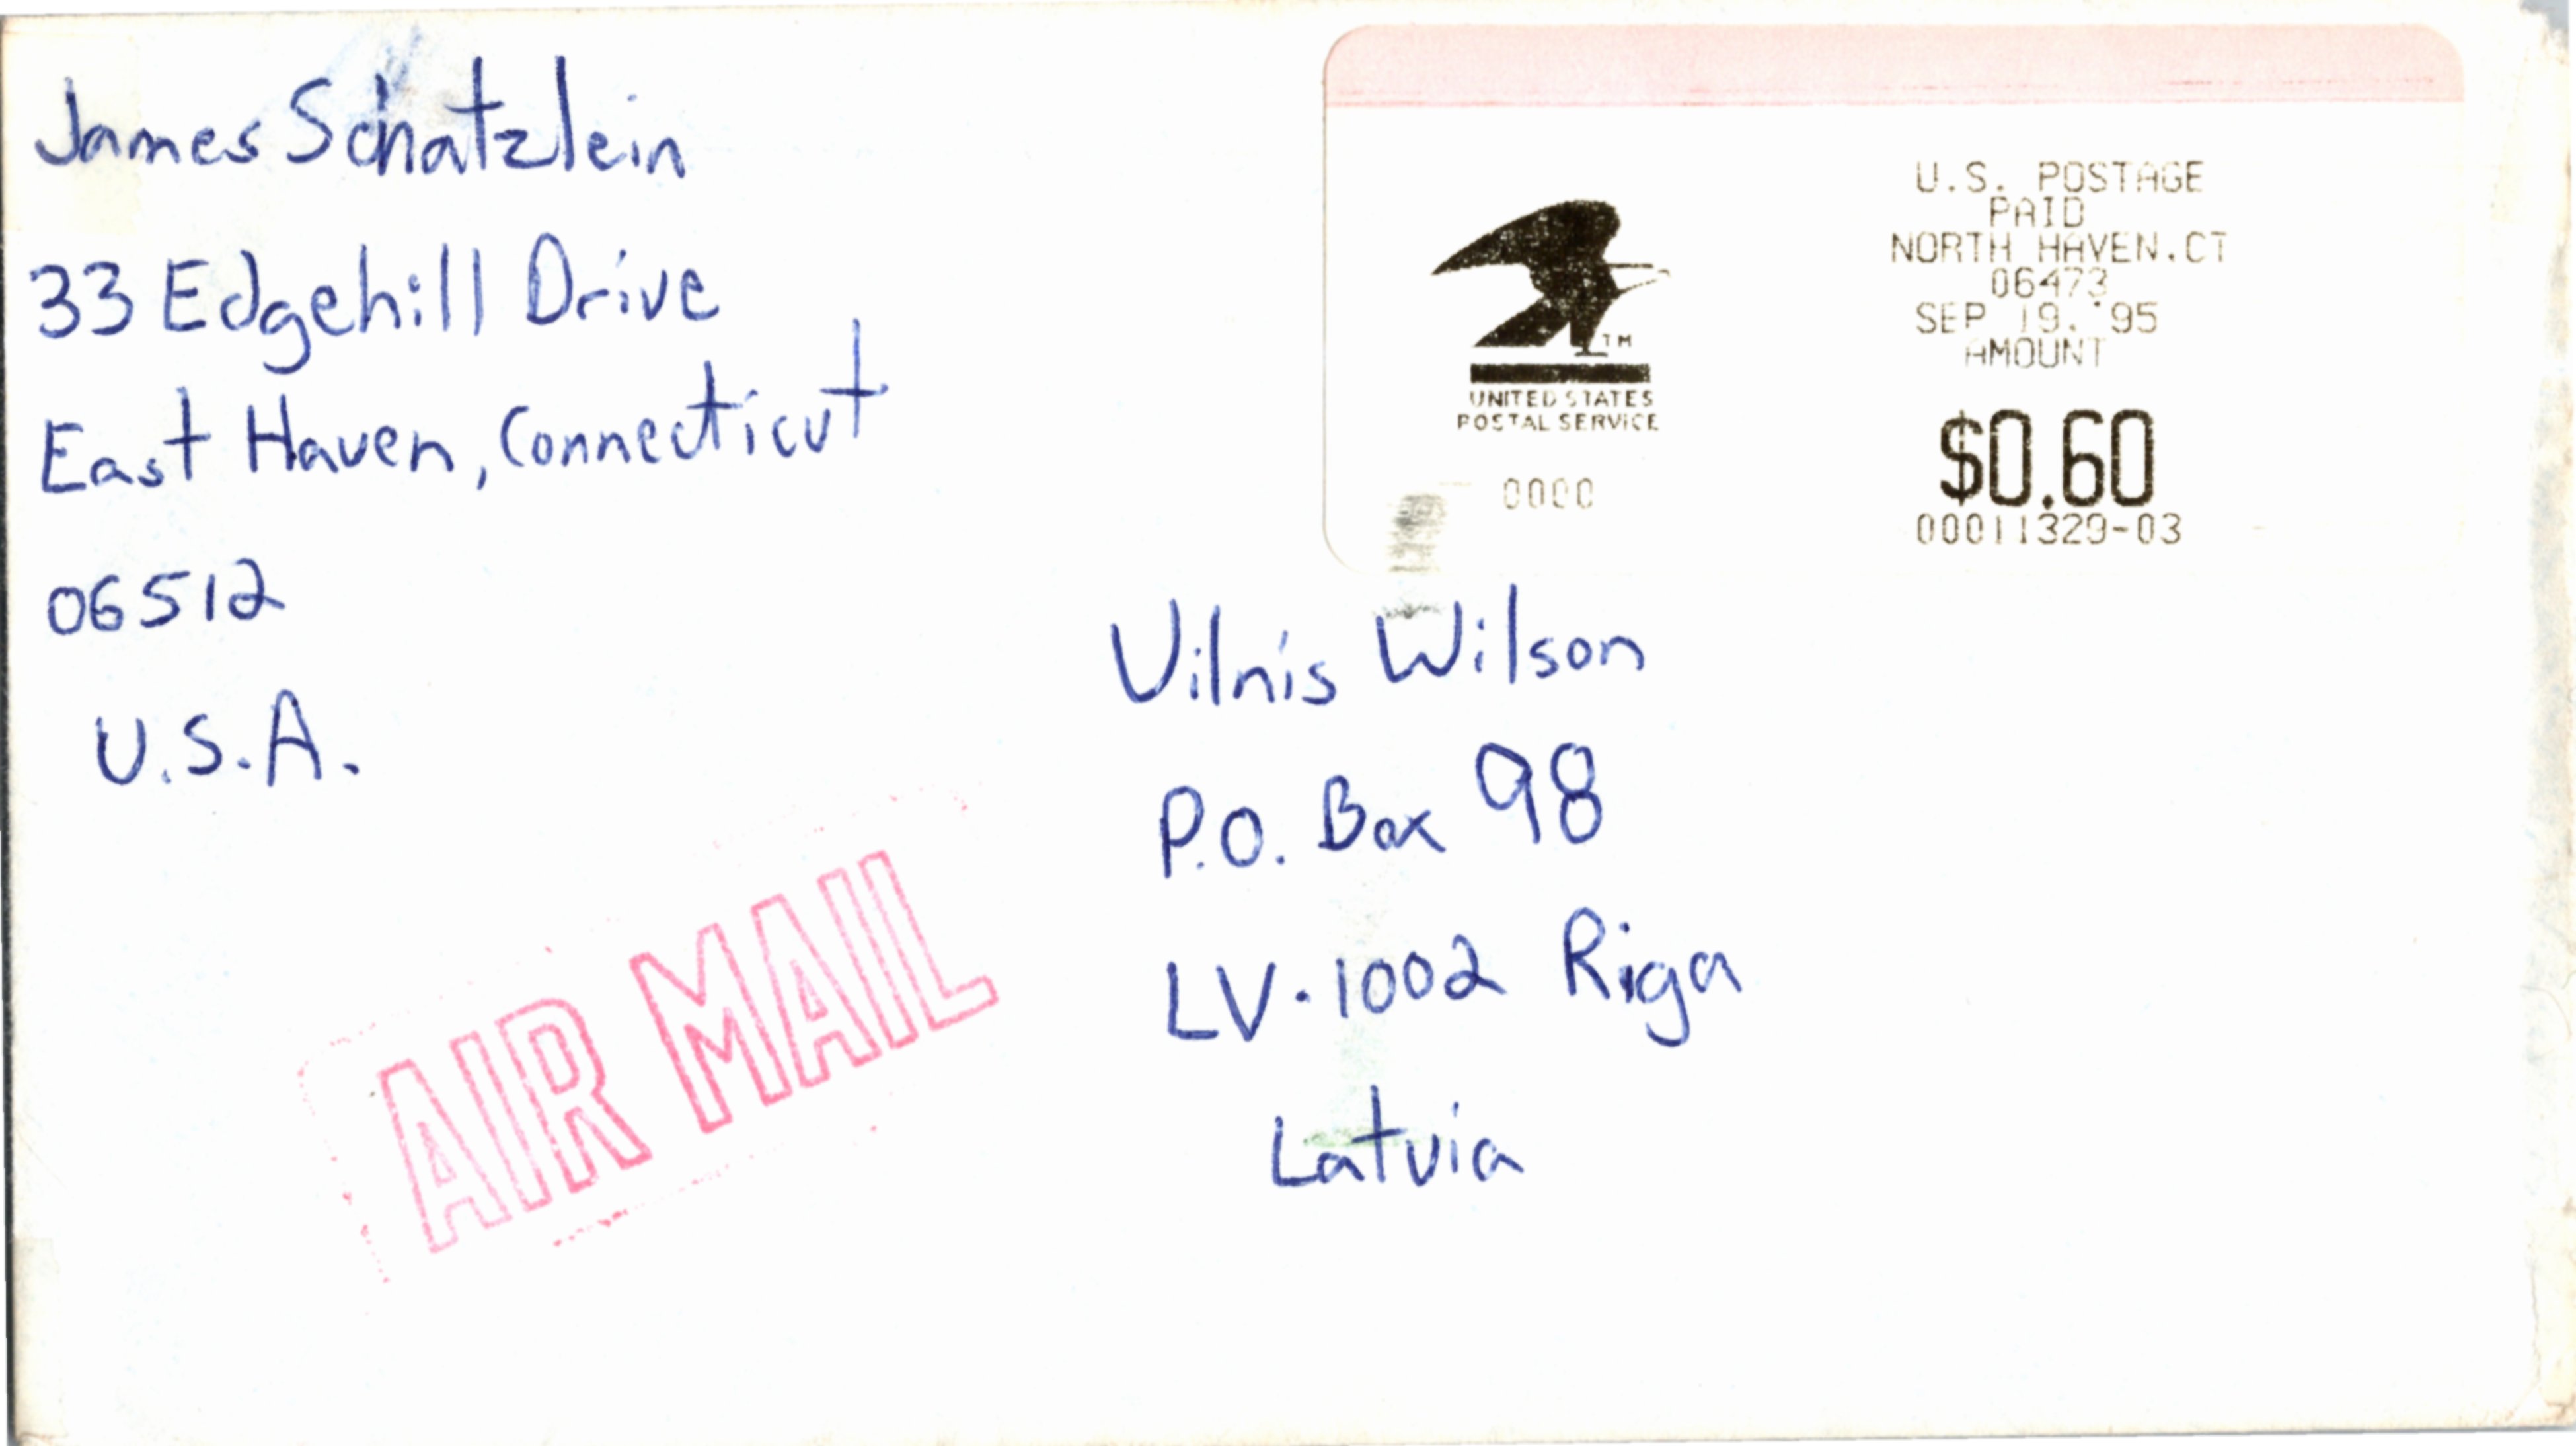 James Schatzlein
33 Edgehill Drive
East Haven, Connecticut
06512
U.S.A.
U.S. POSTAGE
PAID
NORTH HAVEN.CT
06473
SEP 19. '95
AMOUNT
$0.60
00011329-03
TM
UNITED STATES
POSTAL SERVICE
0000
Vilnis Wilson
P.O. Box 98
LV-1002 Riga
Latvia
AIR MAIL